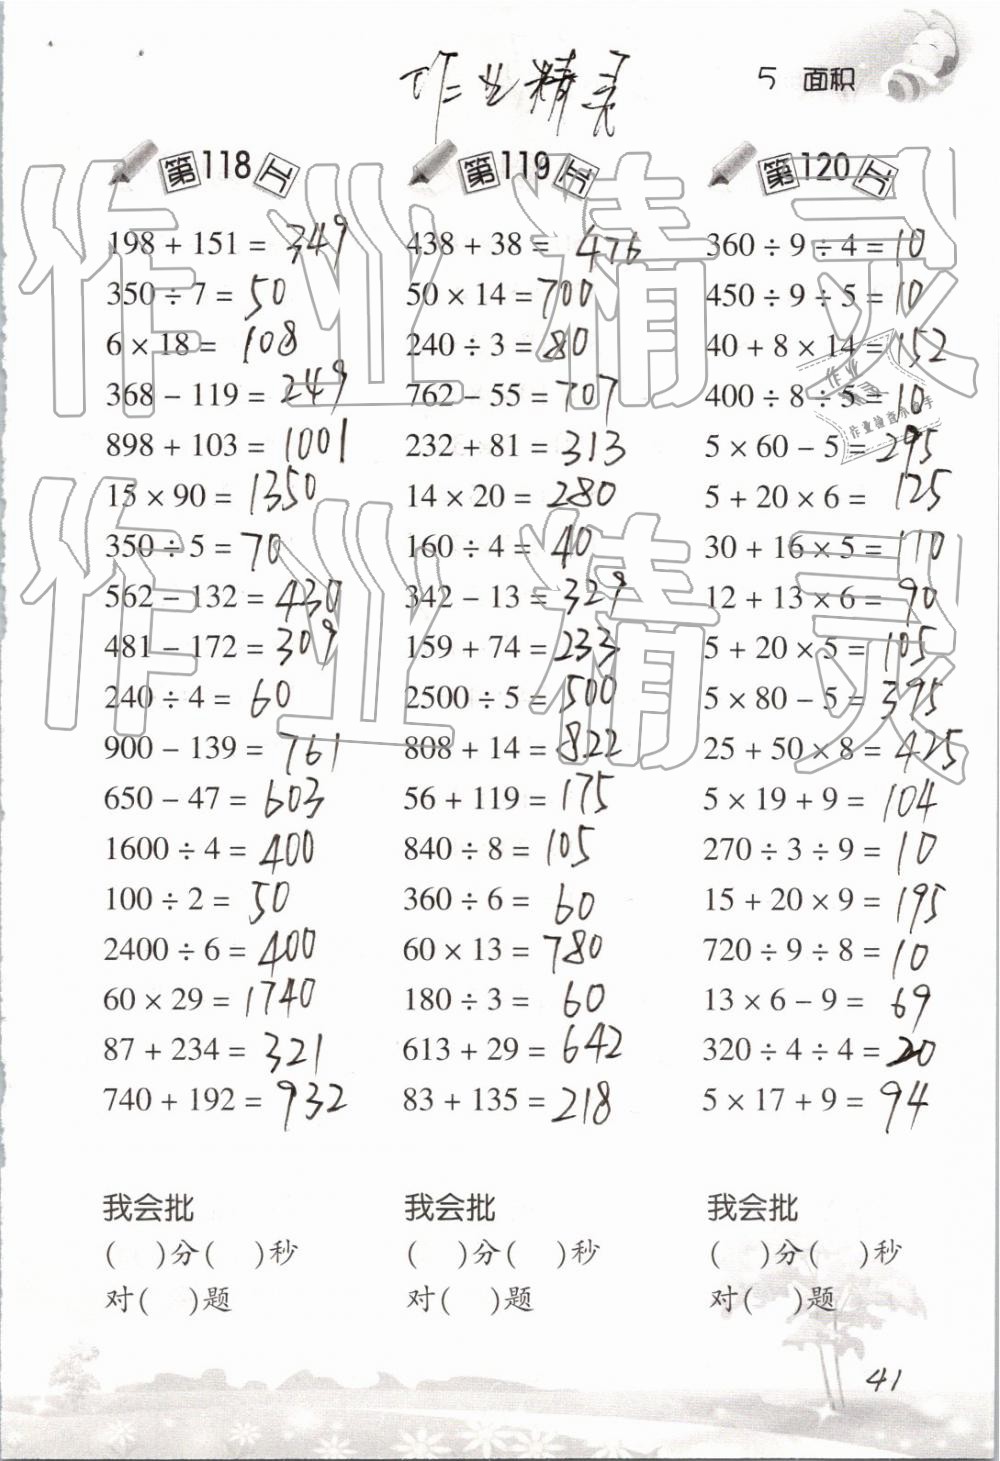 作业精灵
5 面积
第118工
198 + 151 = 349
350 ÷ 7 = 50
6 × 18 = 108
368 − 119 = 249
898 + 103 = 1001
15 × 90 = 1350
350 ÷ 5 = 70
562 − 132 = 430
481 − 172 = 309
240 ÷ 4 = 60
900 − 139 = 761
650 − 47 = 603
1600 ÷ 4 = 400
100 ÷ 2 = 50
2400 ÷ 6 = 400
60 × 29 = 1740
87 + 234 = 321
740 + 192 = 932
我会批
(  )分(  )秒
对(  )题
第119工
438 + 38 = 476
50 × 14 = 700
240 ÷ 3 = 80
762 − 55 = 707
232 + 81 = 313
14 × 20 = 280
160 ÷ 4 = 40
342 − 13 = 329
159 + 74 = 233
2500 ÷ 5 = 500
808 + 14 = 822
56 + 119 = 175
840 ÷ 8 = 105
360 ÷ 6 = 60
60 × 13 = 780
180 ÷ 3 = 60
613 + 29 = 642
83 + 135 = 218
我会批
(  )分(  )秒
对(  )题
第120工
360 ÷ 9 ÷ 4 = 10
450 ÷ 9 ÷ 5 = 10
40 + 8 × 14 = 152
400 ÷ 8 ÷ 5 = 10
5 × 60 − 5 = 295
5 + 20 × 6 = 125
30 + 16 × 5 = 110
12 + 13 × 6 = 90
5 + 20 × 5 = 105
5 × 80 − 5 = 395
25 + 50 × 8 = 425
5 × 19 + 9 = 104
270 ÷ 3 ÷ 9 = 10
15 + 20 × 9 = 195
720 ÷ 9 ÷ 8 = 10
13 × 6 − 9 = 69
320 ÷ 4 ÷ 4 = 20
5 × 17 + 9 = 94
我会批
(  )分(  )秒
对(  )题
41
作业精灵
作业精灵
作业
作业检查小助手